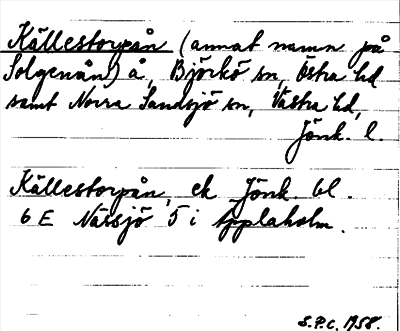 Källestorpån (annat namn på
Solgenån!) å, Björkö sn, Östra hd
samt Norra Sandsjö sn, Västra hd,
Jönk. l.
Källestorpån, ek Jönk. bl.
6 E Nässjö 5 i Äpplaholm.
S.P.C. 1958.